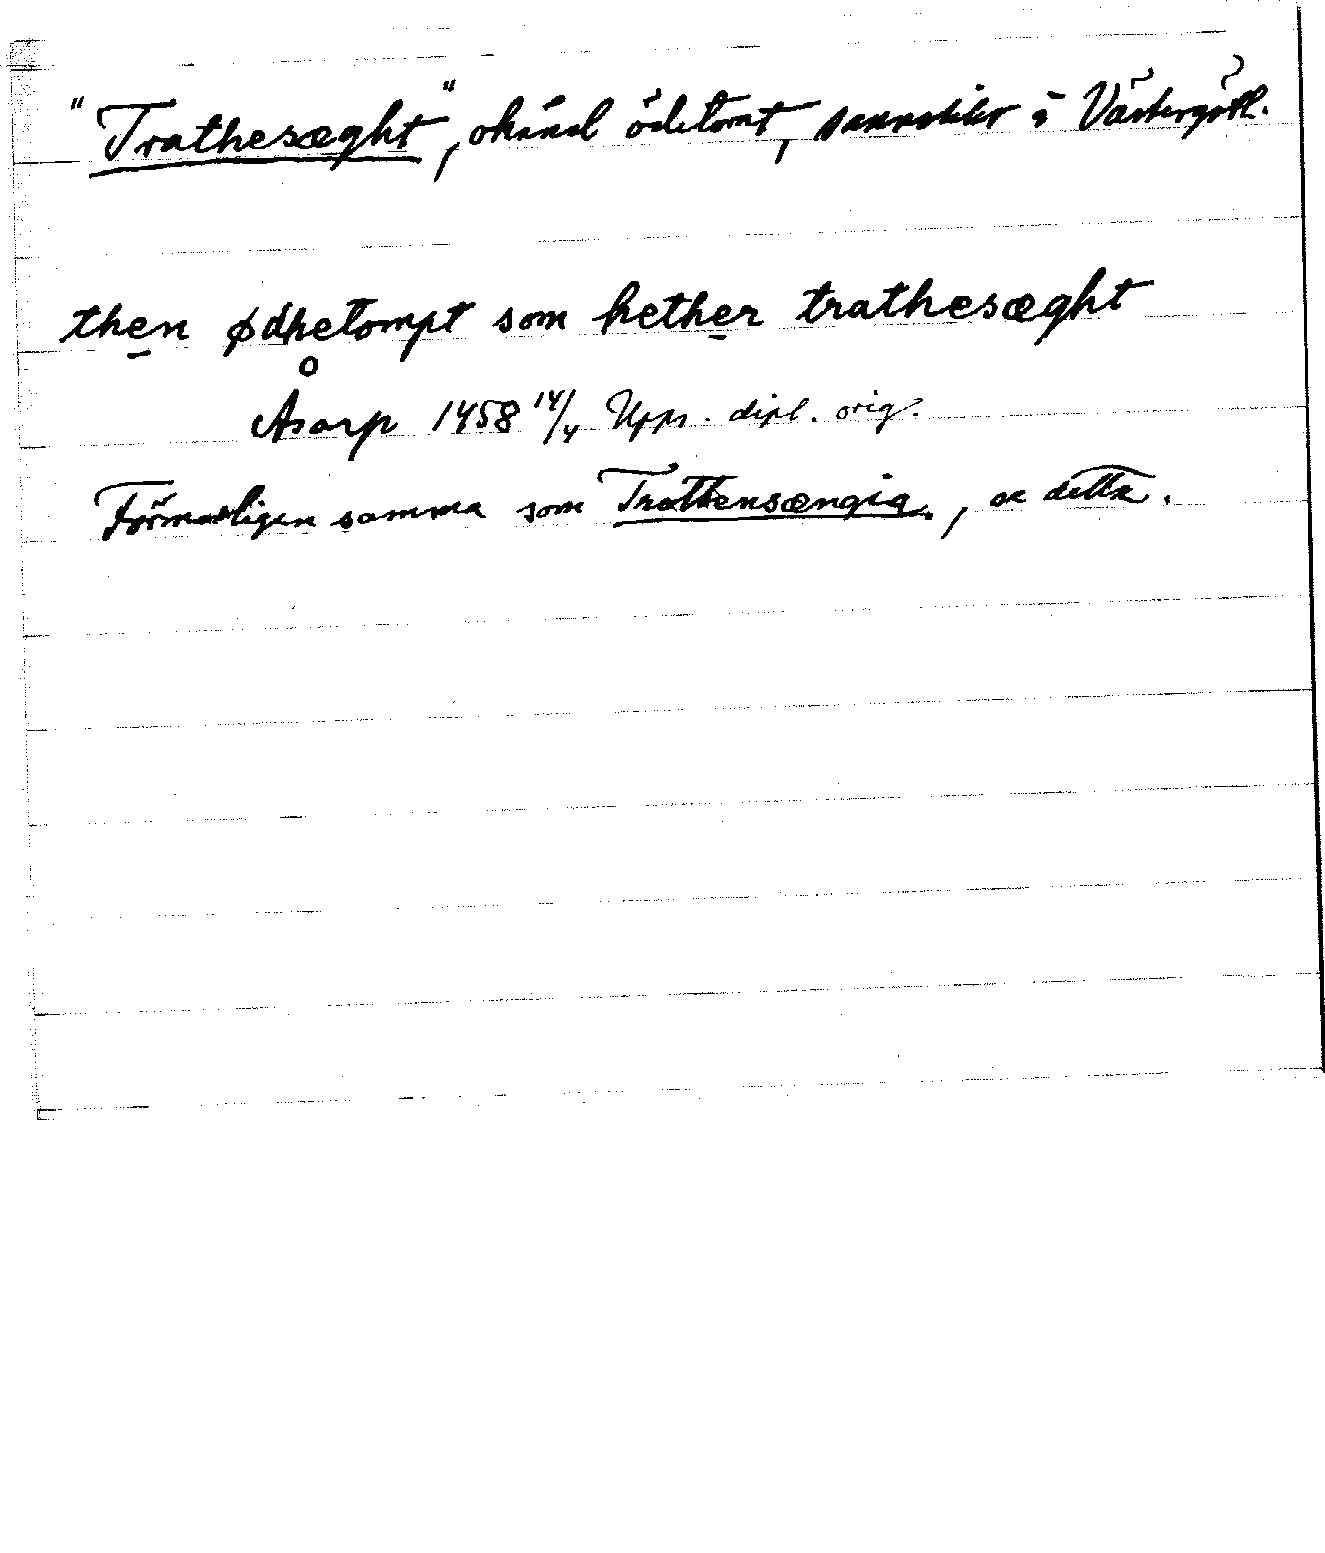 "Trathesæght", okänd ödetomt, sannolikt i Västergötl.
then ødhetompt som hether trathesæght
Åsarp 1458 14/4 Upps. dipl. orig.
Förmodligen samma som Trattensængia, se detta.